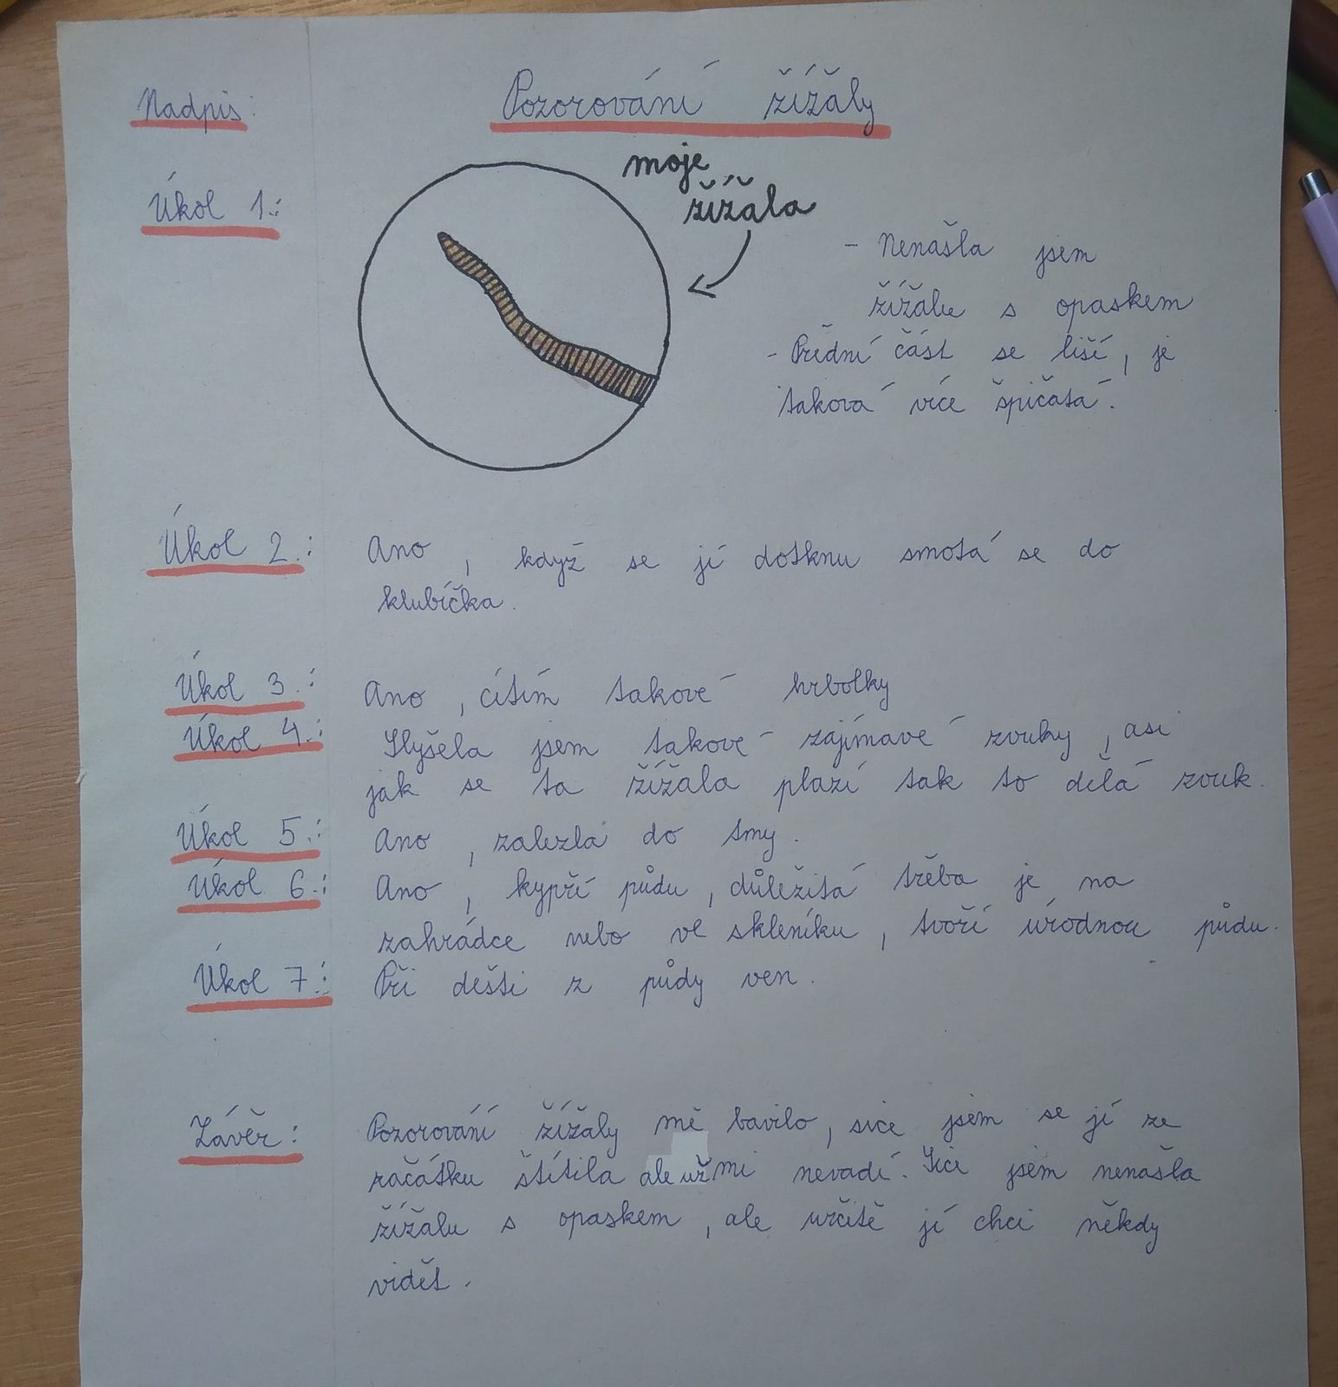 Nadpis: Pozorování žížaly
moje
žížala
Úkol 1.:
- Nenašla jsem
žížalu s opaskem
- Přední část se liší, je
taková více špičatá.
Úkol 2.: Ano, když se jí dotknu smotá se do
klubíčka.
Úkol 3.: Ano, cítím takové hrbolky
Úkol 4.: Slyšela jsem takové zajímavé zvuky, asi
jak se ta žížala plazí tak to dělá zvuk.
Úkol 5.: Ano, zalezla do tmy.
Úkol 6.: Ano, kypří půdu, důležitá třeba je na
zahrádce nebo ve skleníku, tvoří úrodnou půdu.
Úkol 7.: Při dešti z půdy ven.
Závěr: Pozorování žížaly mě bavilo, sice jsem se jí ze
začátku štítila ale už mi nevadí. Sice jsem nenašla
žížalu s opaskem, ale určitě jí chci někdy
vidět.